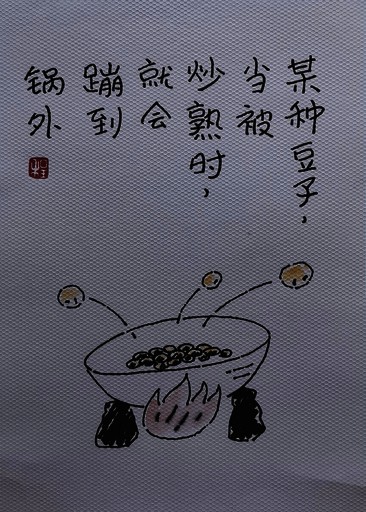 某种豆子，
当被
炒熟时，
就会
蹦到
锅外